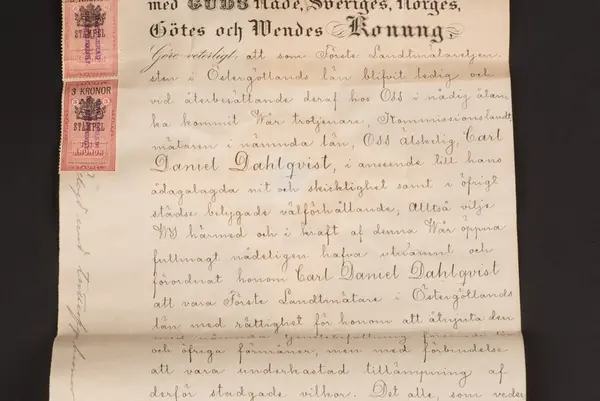 med GUDS Nåde, Sveriges, Norges,
Götes och Wendes Konung
Göre veterligt, att som Förste Landtmätaretjen-
sten i Östergötlands län blifvit ledig och
vid återbesättande deraf hos OSS i nådig åtan-
ka kommit Wår trotjenare, Kommissionslandt
mätaren i nämnda län, OSS älskelig, Carl
Daniel Dahlqvist, i anseende till hans
ådagalagda nit och skicklighet samt i öfrigt
städse betygade välförhållande; Alltså vilje
WJ härmed och i kraft af denna Wår öppna
fullmagt nådeligen hafva utnämnt och
förordnat honom Carl Daniel Dahlqvist
att vara Förste Landtmätare i Östergötlands
län med rättighet för honom att åtnjuta den
och öfriga förmåner, men med förbindelse
att vara underkastad tillämpning af
derför stadgade vilkor. Det alle, som veder
STÄMPEL
3 KRONOR
STÄMPEL
KRONOR